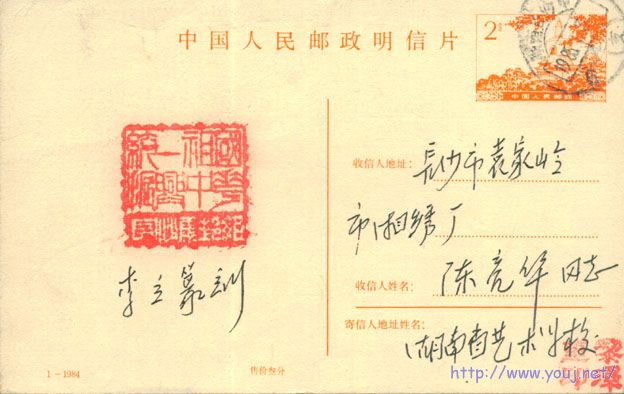 中国人民邮政明信片
2分
中国人民邮政
統一祖國
振興中華
李立篆刻
收信人地址：
长沙市袁家岭
市湘绣厂
收信人姓名：
陈亮华同志
寄信人地址姓名：
湖南省艺术学校
1－1984
售价叁分
http://www.youj.net/